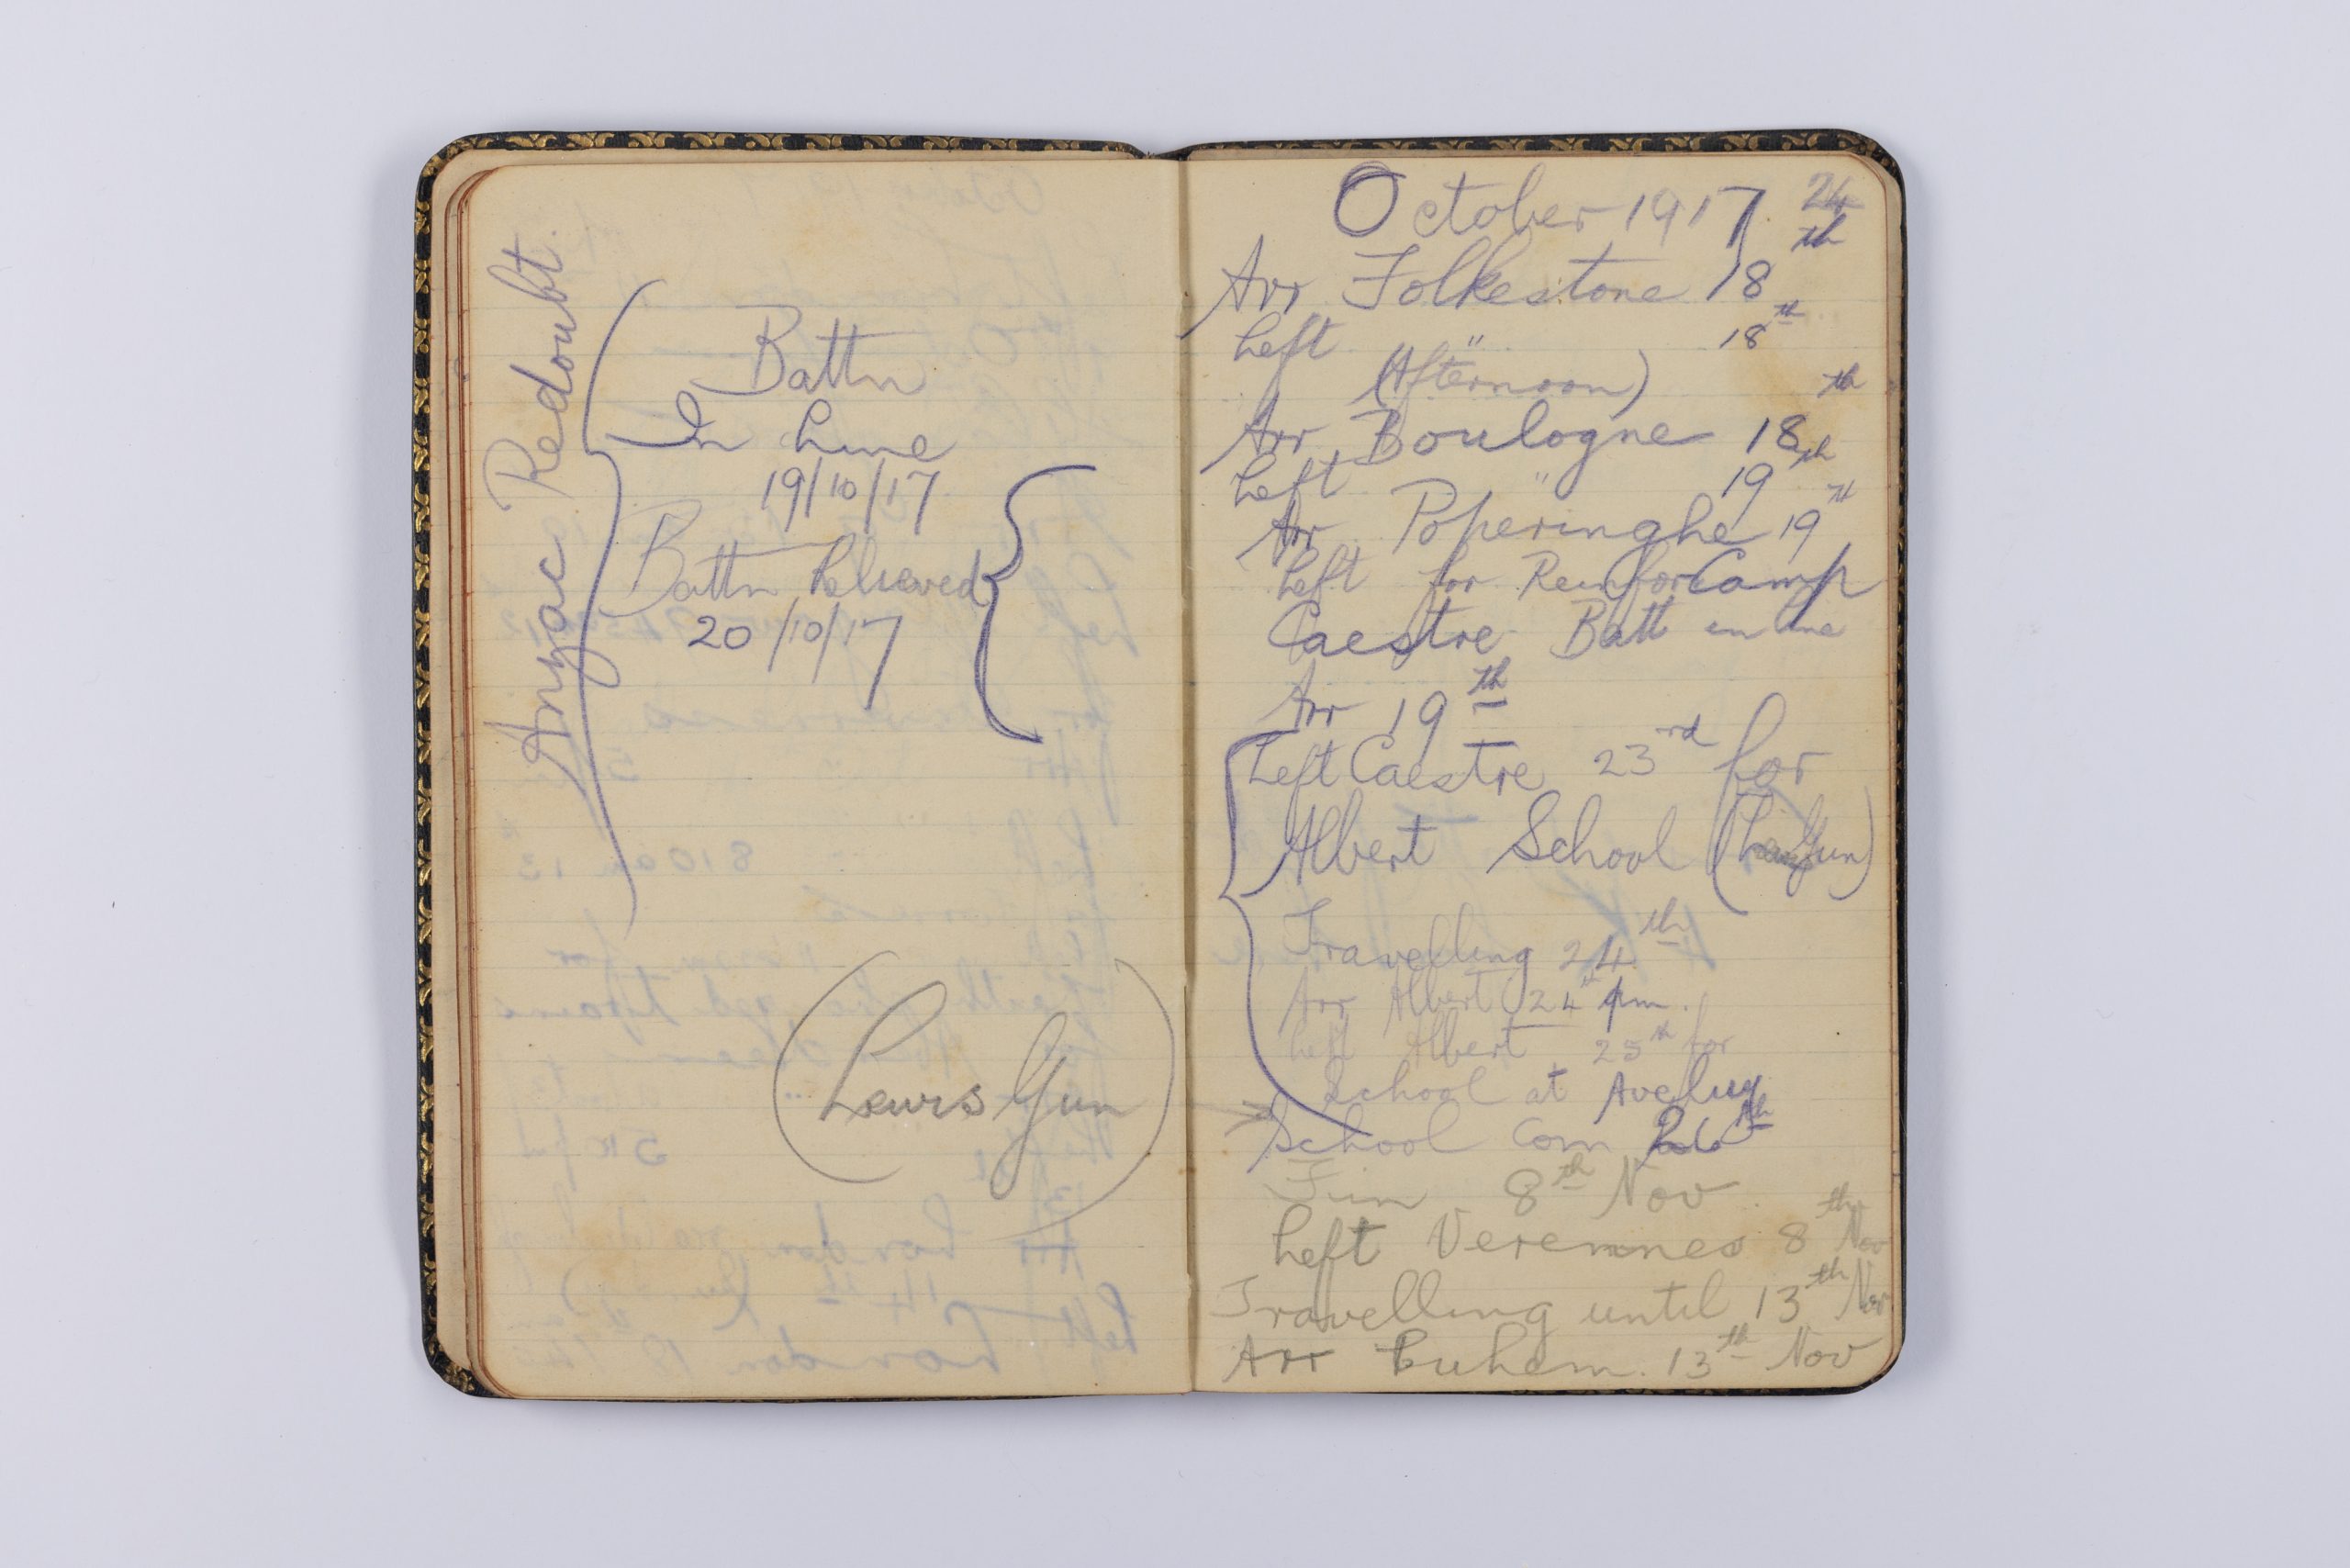 Anzac Redoubt.
Battn
In Line
19/10/17
Battn Relieved
20/10/17
(Lewis Gun)
October 1917. 24
Arr Folkestone 18th
Left " 18th
(Afternoon)
Arr Boulogne 18th
Left " 19th
Arr Poperinghe 19th
Left for Reinfor Camp
Caestre Batt in line
Arr 19th
Left Caestre 23rd for
Albert School (Lewis Gun)
Travelling 24th
Arr Albert 24th pm.
Left Albert 25th for
School at Aveluy
School Com 26th
8th Nov
Left 8th Nov
Travelling until 13th Nov
Arr 13th Nov